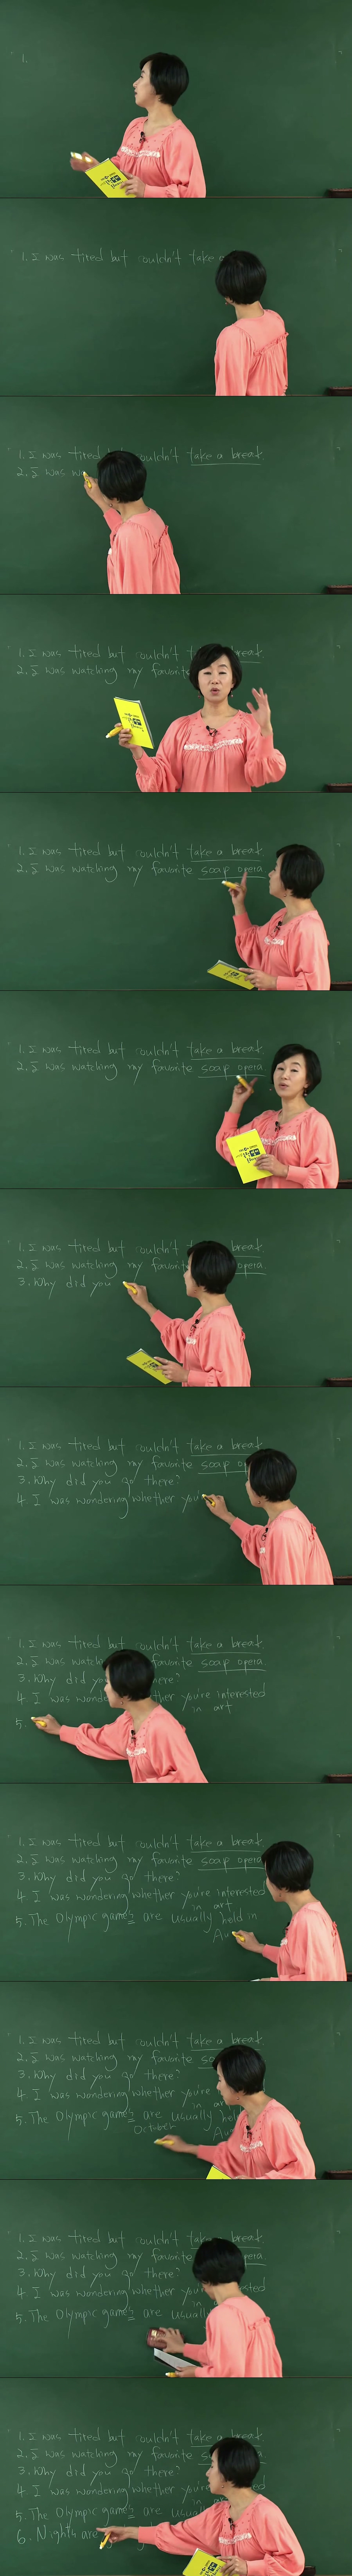 1.
1. I was tired but couldn't take
1. I was tired but couldn't take a break
2. I was
1. I was tired but couldn't break
2. I was watching my favorite
1. I was tired but couldn't take a break
2. I was watching my favorite soap opera
1. I was tired but couldn't take a break
2. I was watching my favorite soap opera
1. I was tired but couldn't break
2. I was watching my favorite opera
3. Why did you
1. I was tired but couldn't take a break
2. I was watching my favorite soap
3. Why did you go there?
4. I was wondering whether you
1. I was tired but couldn't take a break
2. I was watch favorite soap opera
3. Why did there?
4. I was whether you're interested
in art
5.
1. I was tired but couldn't take a break
2. I was watching my favorite soap opera
3. Why did you go there?
4. I was wondering whether you're interested
in art
5. The Olympic games are usually held in
Au
1. I was tired but couldn't take a break
2. I was watching my favorite
3. Why did you go there?
4. I was wondering whether you're
in
5. The Olympic games are usually
October Au
1. I was tired but couldn't take
2. I was watching my favorite opera
3. Why did you go there?
4. I was wondering whether
5. The Olympic games are usually
1. I was tired but couldn't take a break
2. I was watching my favorite
3. Why did you go there?
4. I was wondering whether you're
5. The Olympic games are
6. Nights are